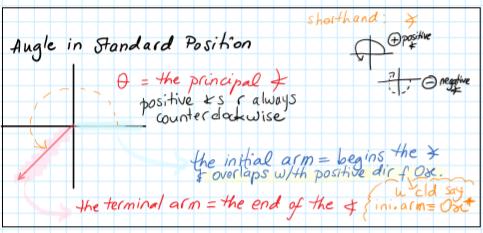 shorthand: ∡
Angle in Standard Position
⊕ positive ∡
θ = the principal ∡
⊖ negative ∡
positive ∡s r always
counterclockwise
the initial arm = begins the ∡
& overlaps with positive dir f Ox.
u cld say
the terminal arm = the end of the ∡
ini.arm = Ox